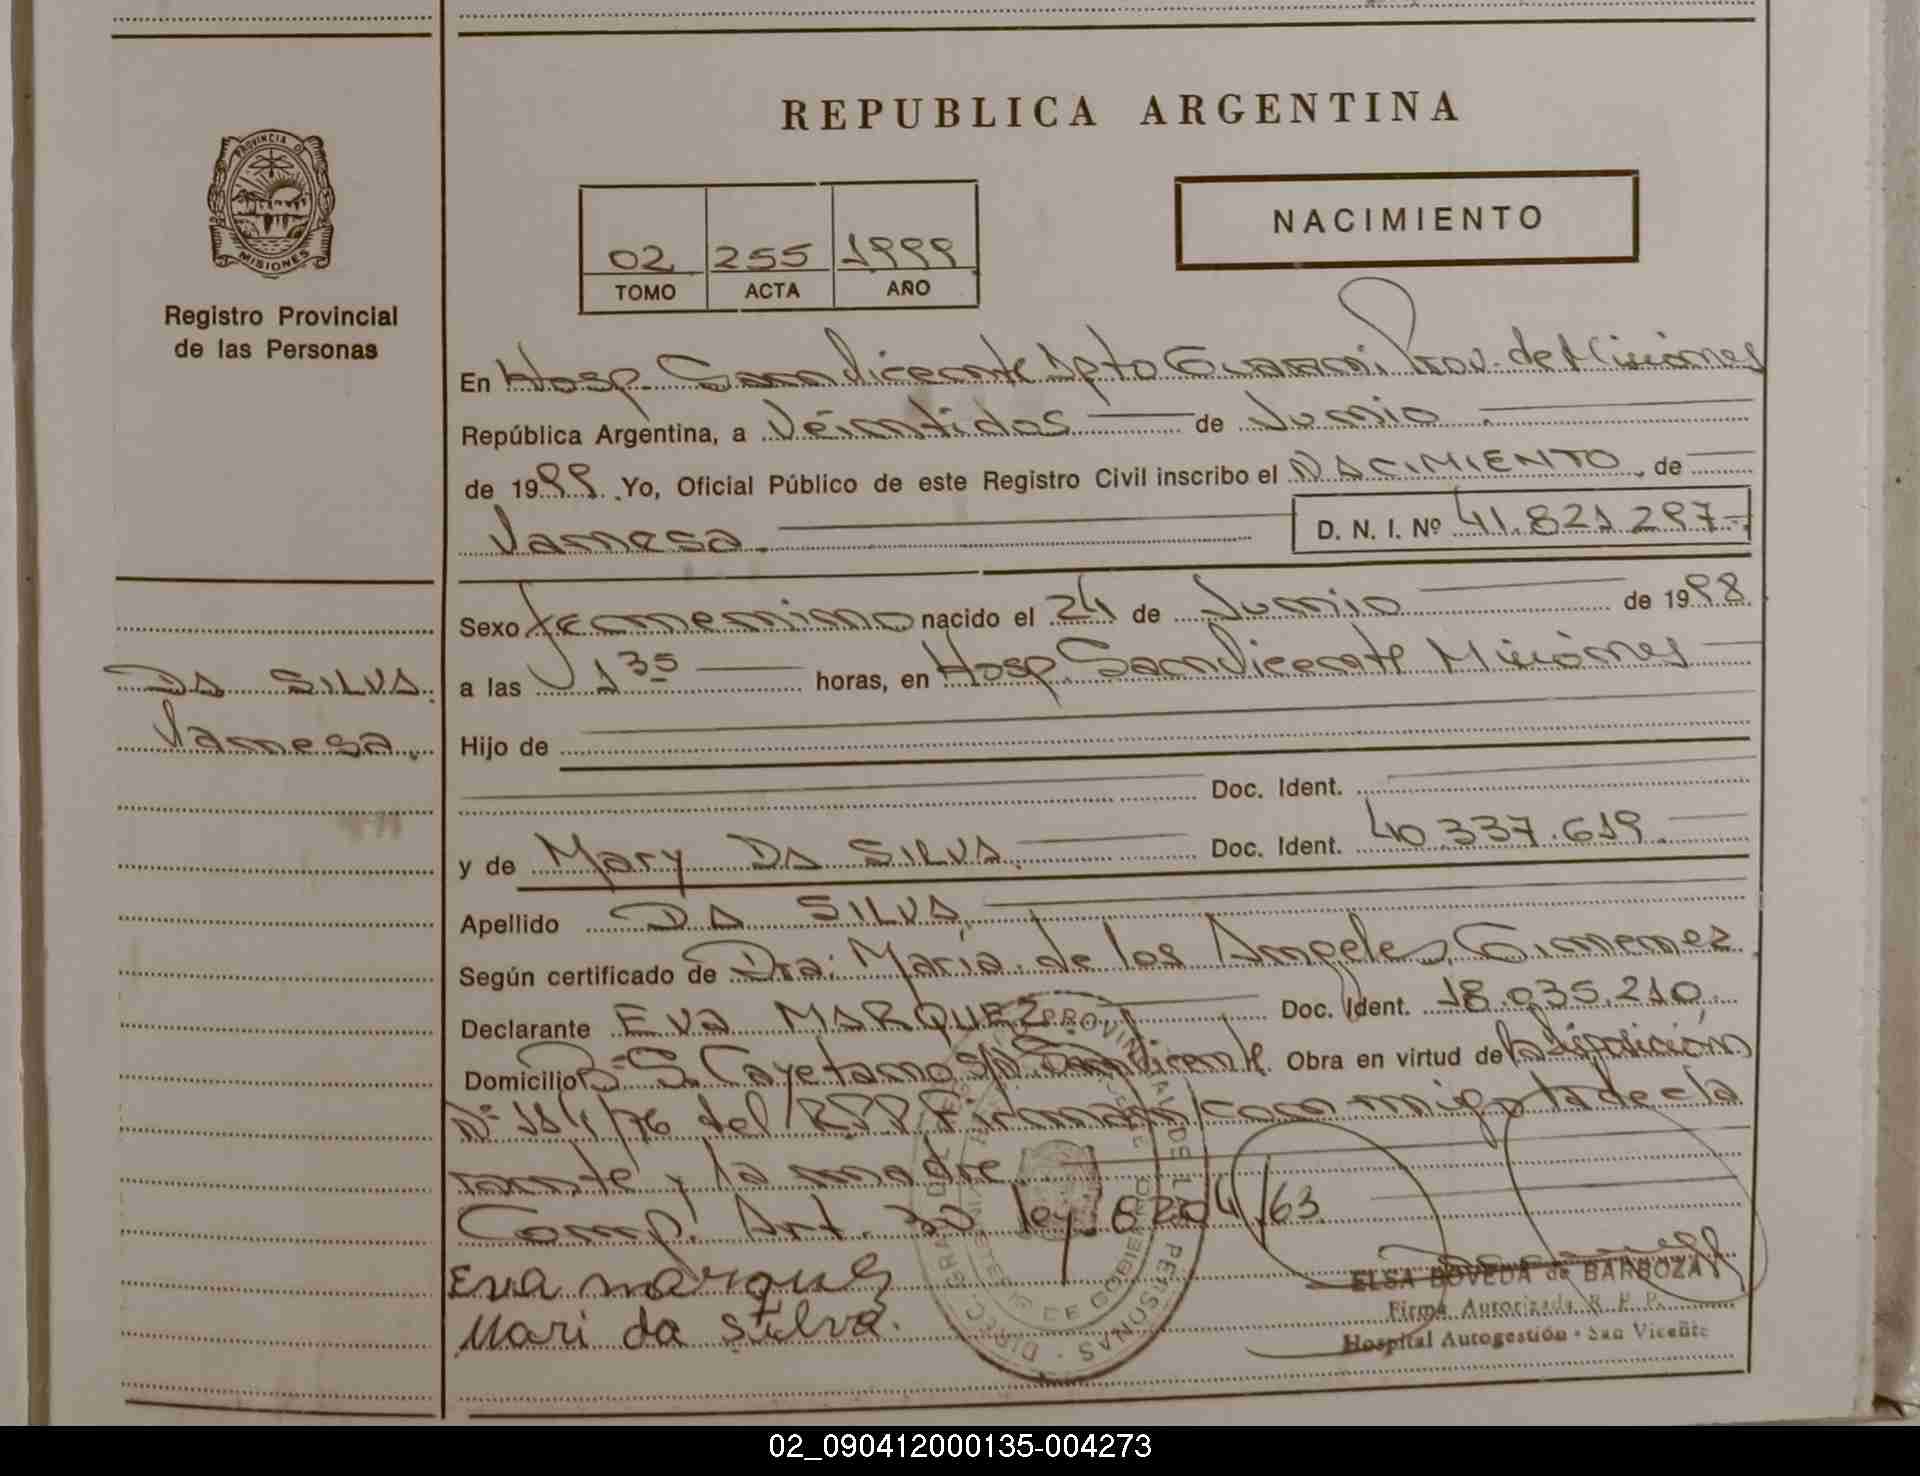 REPUBLICA ARGENTINA
PROVINCIA DE
MISIONES
Registro Provincial
de las Personas
NACIMIENTO
02 255 1999
TOMO ACTA AÑO
En Hosp. San Vicente Dpto Guarani Prov. de Misiones
República Argentina, a Veintidos de Junio
de 1999. Yo, Oficial Público de este Registro Civil inscribo el NACIMIENTO, de
Vanesa. D. N. I. Nº 41.821.297
Sexo femenino nacido el 24 de Junio de 1998
a las 1 35 horas, en Hosp. San Vicente Misiones
DA SILVA.
Vanesa.
Hijo de
Doc. Ident.
y de Mary DA SILVA. Doc. Ident. 40.337.619.
Apellido DA SILVA.
Según certificado de Dra. María de los Angeles Gimenez.
Declarante EVA MARQUEZ Doc. Ident. 18.035.210.
Domicilio Bº S. Cayetano S/N San Vicente. Obra en virtud de la disposición
Nº 114/76 del RPP Firman conmigo la decla
rante y la madre.
Comp. Art. 30 ley 8204/63
Eva marques
Mari da silva.
ELSA BOVEDA de BARBOZA
Firma Autorizada R. P. P.
Hospital Autogestión - San Vicente
02_090412000135-004273